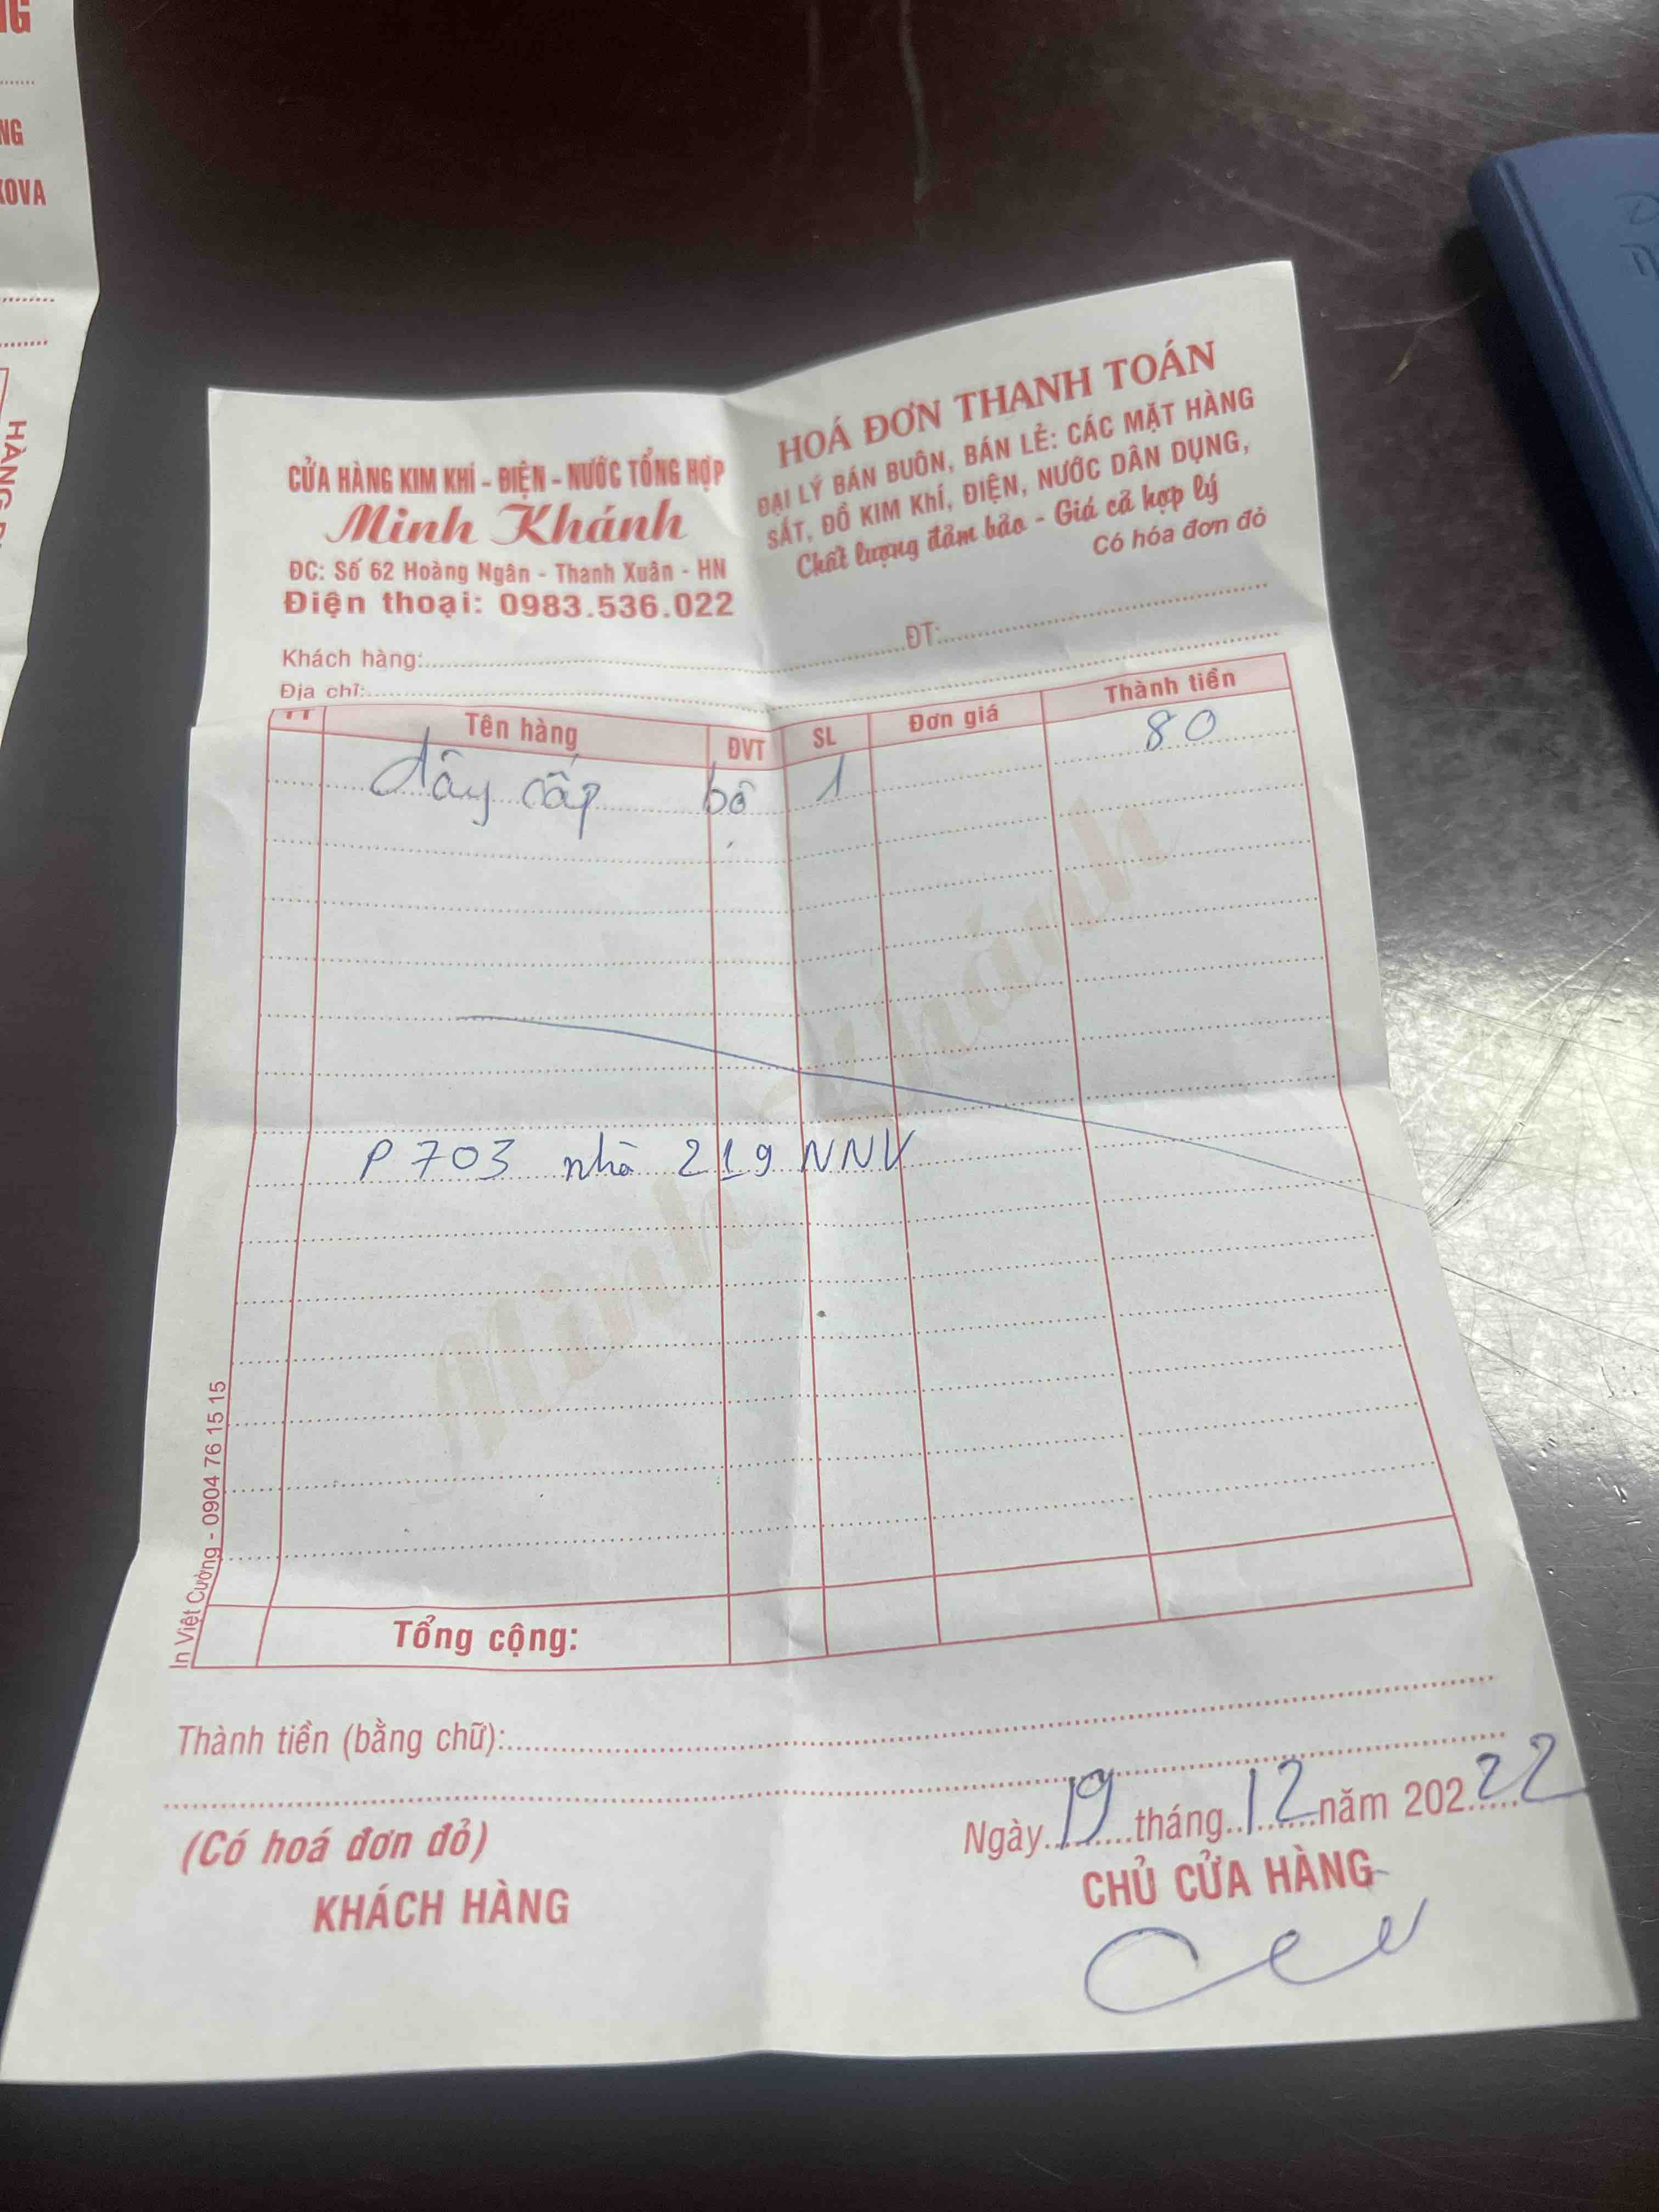 NG
KOVA
HÀNG
CỬA HÀNG KIM KHÍ - ĐIỆN - NƯỚC TỔNG HỢP
Minh Khánh
ĐC: Số 62 Hoàng Ngân - Thanh Xuân - HN
Điện thoại: 0983.536.022
HOÁ ĐƠN THANH TOÁN
ĐẠI LÝ BÁN BUÔN, BÁN LẺ: CÁC MẶT HÀNG
SẮT, ĐỒ KIM KHÍ, ĐIỆN, NƯỚC DÂN DỤNG,
Chất lượng đảm bảo - Giá cả hợp lý
Có hóa đơn đỏ
Khách hàng: ĐT:
Địa chỉ:
TT Tên hàng ĐVT SL Đơn giá Thành tiền
dây cấp bộ 1 80
P703 nhà 219 NNV
Minh Khánh
Tổng cộng:
In Việt Cường - 0904 76 15 15
Thành tiền (bằng chữ):
Ngày 19 tháng 12 năm 202 22
(Có hoá đơn đỏ)
KHÁCH HÀNG CHỦ CỬA HÀNG